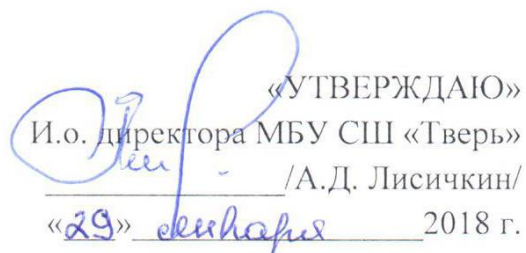 «УТВЕРЖДАЮ»
И.о. директора МБУ СШ «Тверь»
/А.Д. Лисичкин/
«29» января 2018 г.